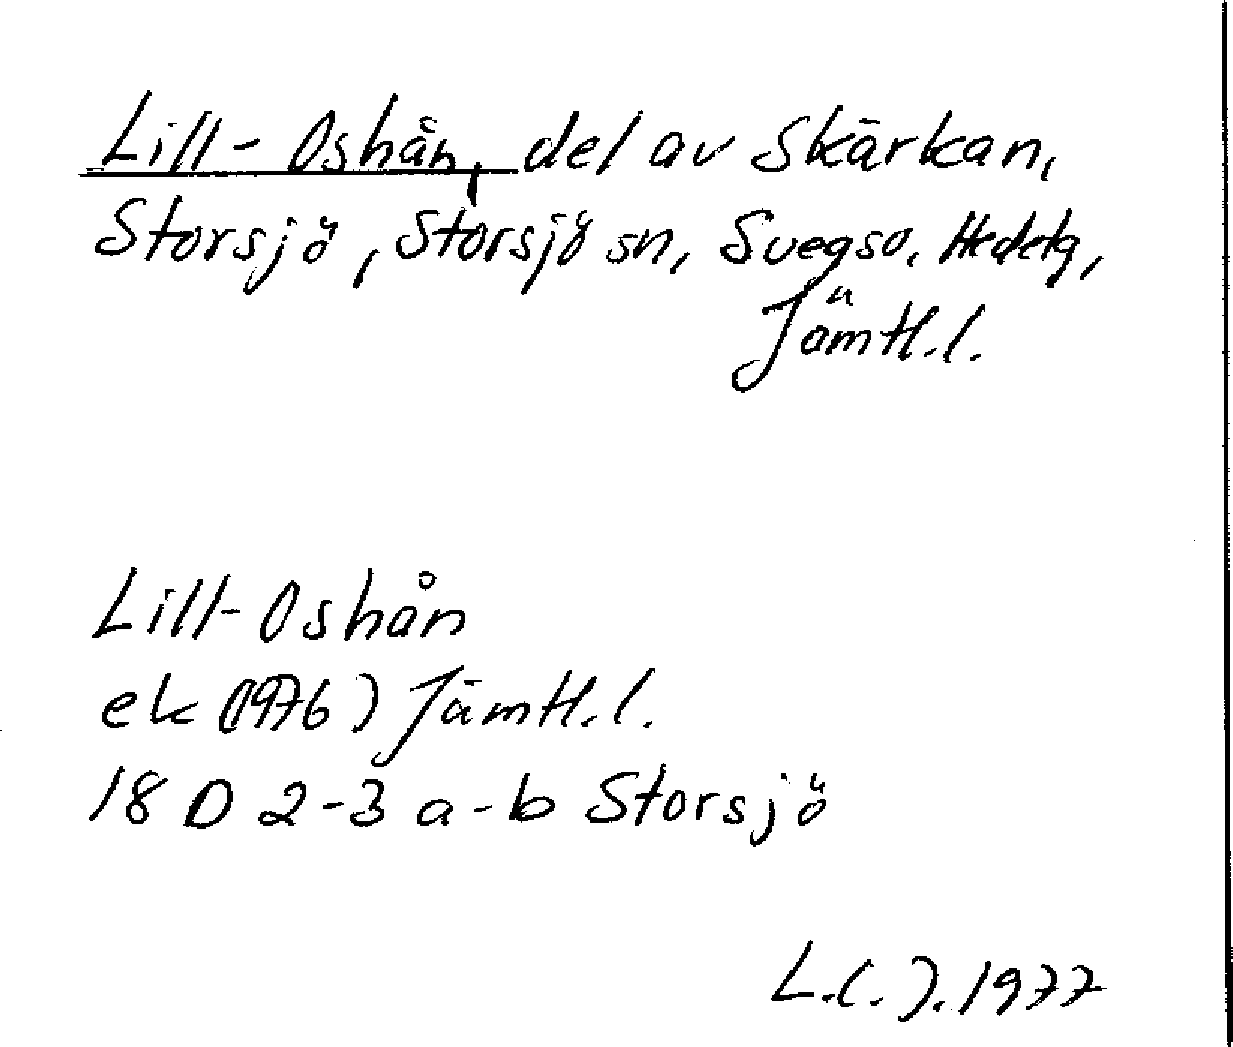 Lill-Oshån, del av Skärkan,
Storsjö, Storsjö sn, Svegso, Hedetg,
Jämtl.l.
Lill-Oshån
ek (1976) Jämtl.l.
18 D 2-3 a-b Storsjö
L.(.). 1977